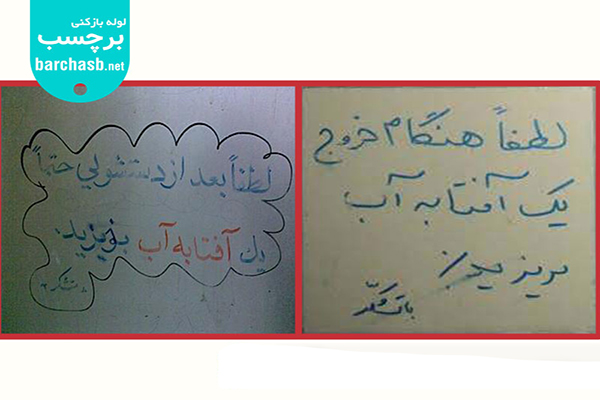 لوله بازکنی
برچسب
barchasb.net
لطفاً هنگام خروج
یک آفتابه آب
بریزید
باتشکر
لطفاً بعد از دستشوئی حتماً
یک آفتابه آب بریزید.
تشکر